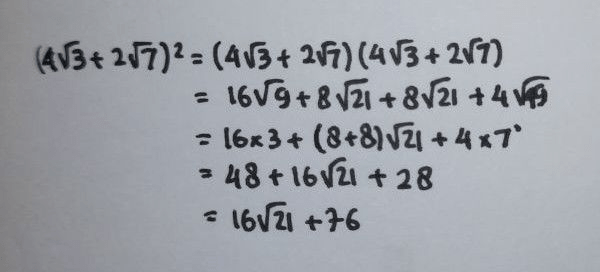 (4√3 + 2√7)² = (4√3 + 2√7)(4√3 + 2√7)
= 16√9 + 8√21 + 8√21 + 4√49
= 16×3 + (8+8)√21 + 4×7
= 48 + 16√21 + 28
= 16√21 + 76